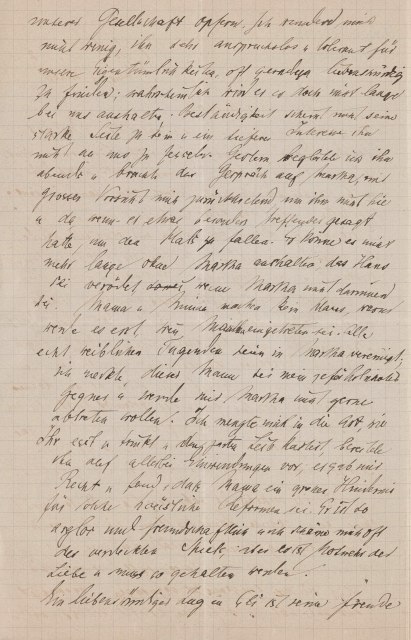 unserer Gesellschaft opfern. Ich wundere mich
nicht wenig, ihn sehr anspruchslos u tolerant für
unsere Eigentümlichkeiten, oft geradezu liebenswürdig
zu finden; wahrscheinlich wird er es noch nicht lange
bei uns aushalten, Beständigkeit scheint mal seine
starke Seite zu sein u ein tieferes Interesse ihn
nicht an uns zu fesseln. Gestern begleitete ich ihn
abends u brachte das Gespräch auf Martha, mit
grosser Vorsicht mich zurückhaltend um ihm nicht hie
u da wenn er etwas besonders treffendes gesagt
hatte um den Hals zu fallen. Er könne es nicht
mehr lange ohne Martha aushalten, das Haus
sei verödet wenn Martha nicht darinnen
sei, Mama u Minna machen kein Haus, warm
werde es erst wenn Martha eingetreten sei. Alle
echt weiblichen Tugenden seien in Martha vereinigt;
ich merkte, dieser Mann sei mein gefährlichster
Gegner u werde mir Martha nicht gerne
abtreten wollen. Ich mengte mich in die Art, wie
Ihr esst u trinkt u den ganzen Leib kasteit, bereitete
ihn auf allerlei Einwendungen vor, er gab mir
Recht u fand, dass Mama ein grosses Hindernis
für solche häusliche Reformen sei. Er ist so
arglos und freundschaftlich, ich schäme mich oft
des versteckten Spiels, aber es ist Notwehr der
Liebe u muss so gehalten werden.
Ein liebenswürdiger Zug an Eli ist seine Freude